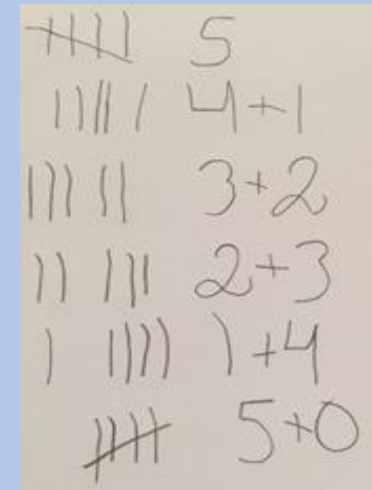 5
4+1
3+2
2+3
1+4
5+0